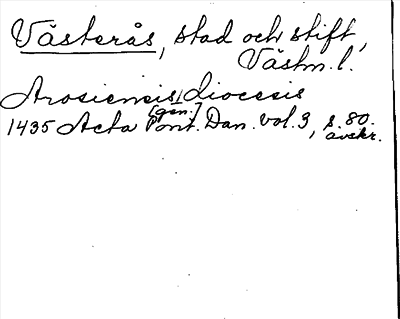 Västerås, stad och stift,
Västm.l.
Arosiensis diocesis
[gen.]
1435 Acta Pont. Dan. vol. 3, s. 80.
avskr.